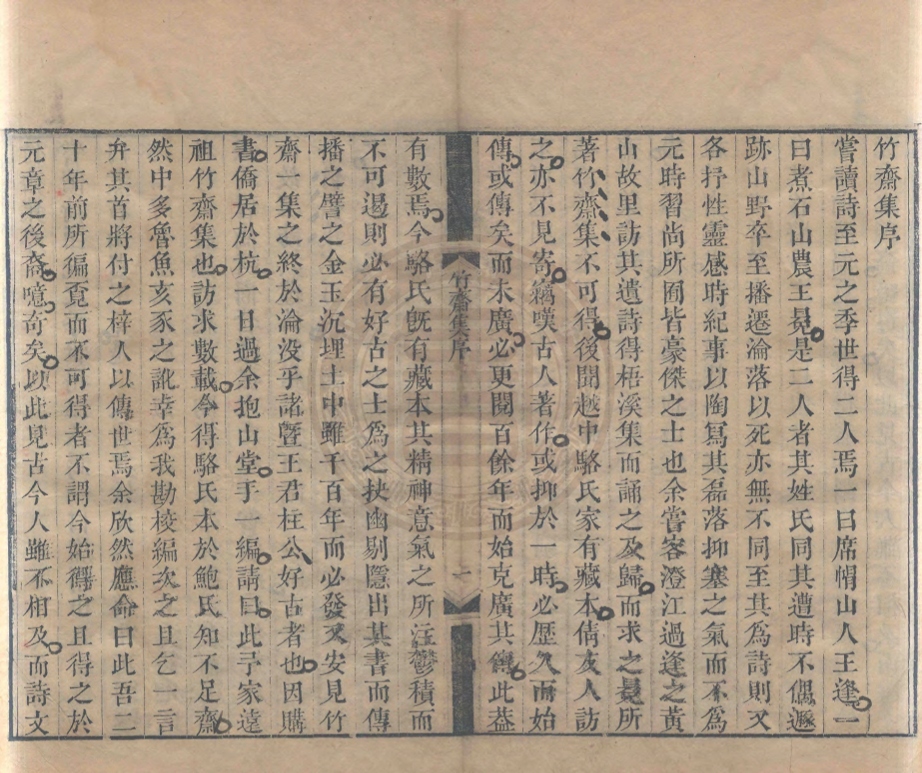 竹齋集序
嘗讀詩至元之季世得二人焉一曰席帽山人王逢一
曰煮石山農王冕是二人者其姓氏同其遭時不偶遯
跡山野卒至播遷淪落以死亦無不同至其為詩則又
各抒性靈感時紀事以陶寫其磊落抑塞之氣而不為
元時習尚所囿皆豪傑之士也余嘗客澄江過逢之黃
山故里訪其遺詩得梧溪集而誦之及歸而求之冕所
著竹齋集不可得後聞越中駱氏家有藏本倩友人訪
之亦不見寄竊嘆古人著作或抑於一時必歷久而始
傳或傳矣而未廣必更閱百餘年而始克廣其傳此葢
竹齋集序
一
有數焉今駱氏旣有藏本其精神意氣之所注鬱積而
不可遏則必有好古之士爲之抉幽剔隱出其書而傳
播之譬之金玉沉埋土中雖千百年而必發又安見竹
齋一集之終於淪没乎諸曁王君柱公好古者也因購
書僑居於杭一日過余抱山堂手一編請曰此予家遠
祖竹齋集也訪求數載今得駱氏本於鮑氏知不足齋
然中多魯魚亥豕之訛幸爲我勘校編次之且乞一言
弁其首將付之梓人以傳世焉余欣然應命曰此吾二
十年前所徧覔而不可得者不謂今始得之且得之於
元章之後裔噫奇矣以此見古今人雖不相及而詩文